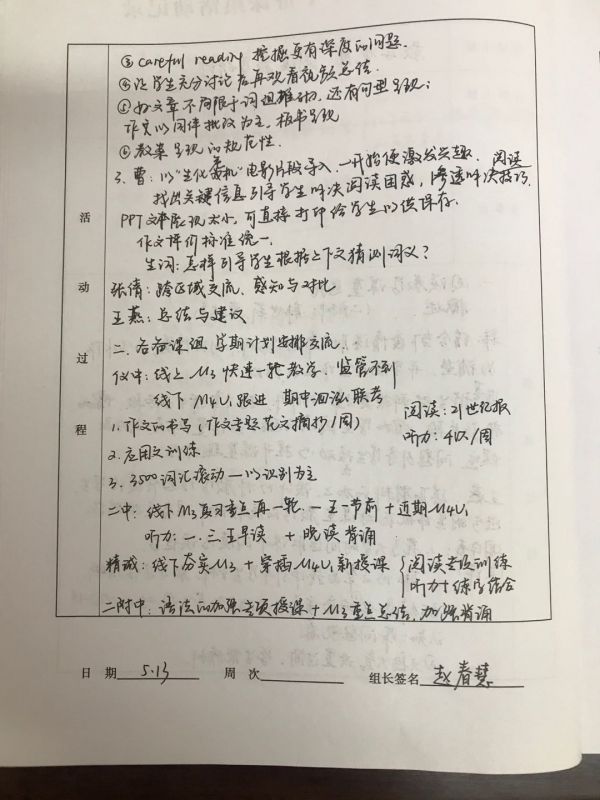 ③ careful reading 挖掘更有深度的问题.
④ 让学生充分讨论后再观看视频总结.
⑤ 好文章不局限于词组推动, 还有句型呈现;
作文以同伴批改为主, 板书呈现
⑥ 教案呈现的规范性.
3. 曹: 以"生化危机"电影片段导入, 一开始便激发兴趣. 阅读
找出关键信息引导学生解决阅读困惑, 渗透解决技巧.
PPT 文本 大小, 可直接打印给学生以供保存.
作文评价标准统一.
生词: 怎样引导学生根据上下文猜测词义?
活动过程
张倩: 跨区域交流, 感知与对比
王燕: 总结与建议
二. 各备课组 学期计划安排交流.
仪中: 线上 M3 快速一轮教学, 监管不到
线下 M4U1 跟进 期中 联考
阅读: 21世纪报
1. 作文的书写 (作文专题 范文摘抄/周)
听力: 4次/周
2. 应用文训练
3. 3500词汇滚动—以识别为主
二中: 线下 M3 复习重点再一轮 一五一节前 + 近期 M4U1
听力: 一. 三. 五早读 + 晚读背诵
精诚: 线下夯实 M3 + 穿插 M4U1 新授课 { 阅读专项训练
听力+练习结合
二附中: 语法的加强专项授课 + M3 重点总结, 加强背诵
日 期 5.13 周 次 组长签名 赵春慧